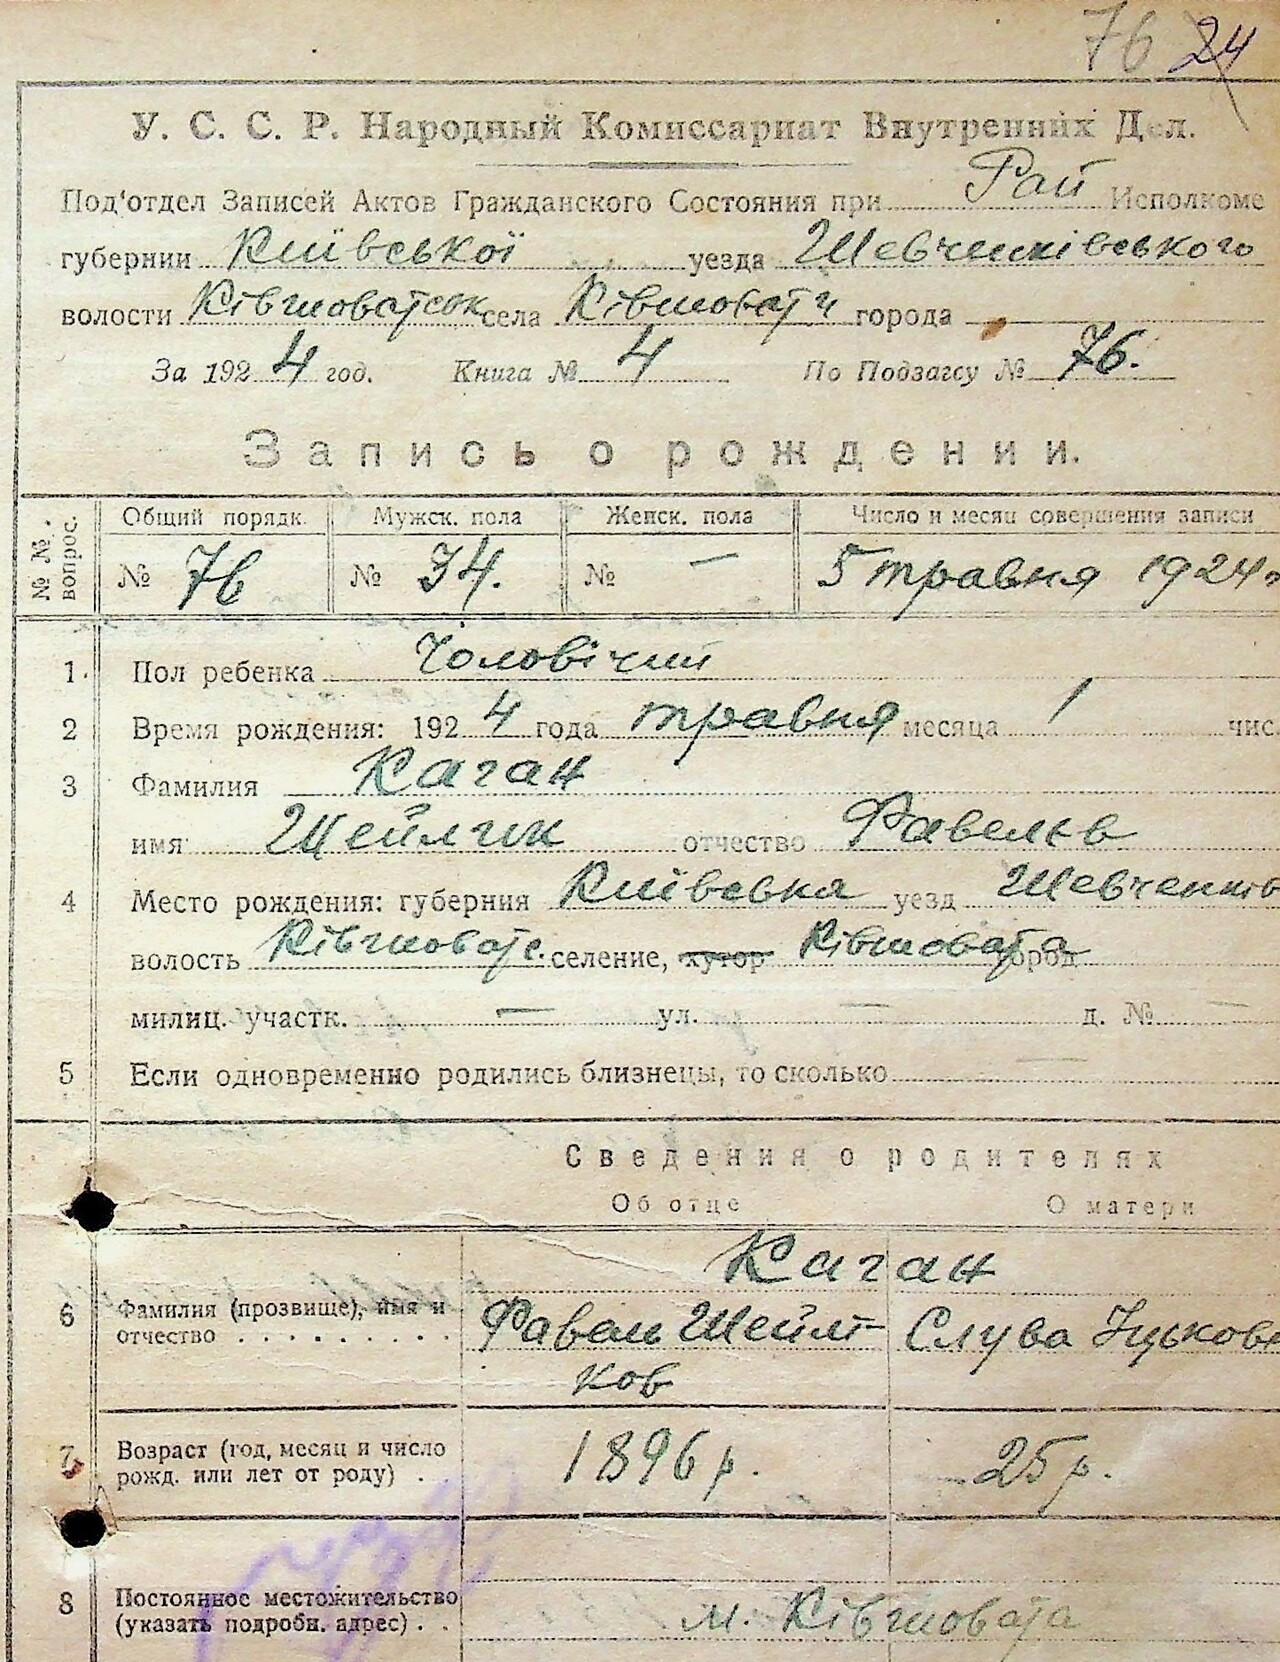 76 24
У. С. С. Р. Народный Комиссариат Внутренних Дел.
Под'отдел Записей Актов Гражданского Состояния при Рай Исполкоме
губернии Київської уезда Шевченківського
волости Ківшоватськ села Ківшовати города
За 1924 год. Книга № 4 По Подзагсу № 76.
Запись о рождении.
№№ вопрос. Общий порядк. Мужск. пола Женск. пола Число и месяц совершения записи
№ 76 № 34. № — 5 травня 1924 г
1. Пол ребенка Чоловічий
2 Время рождения: 1924 года травня месяца 1 чис.
3 Фамилия Каган
имя Шейлик отчество Фавелев
4 Место рождения: губерния Київська уезд Шевченків
волость Ківшоватс. селение, хутор Ківшовата город
милиц. участк. — ул. — д. № —
5 Если одновременно родились близнецы, то сколько —
Сведения о родителях
Об отце О матери
Каган
6 Фамилия (прозвище), имя и отчество . . . . . . . . . . Фавель Шейли- Слува Іцькове
ков
7 Возраст (год, месяц и число рожд. или лет от роду) . 1896 р. 25 р.
8 Постоянное местожительство (указать подробн. адрес) . . м. Ківшовата